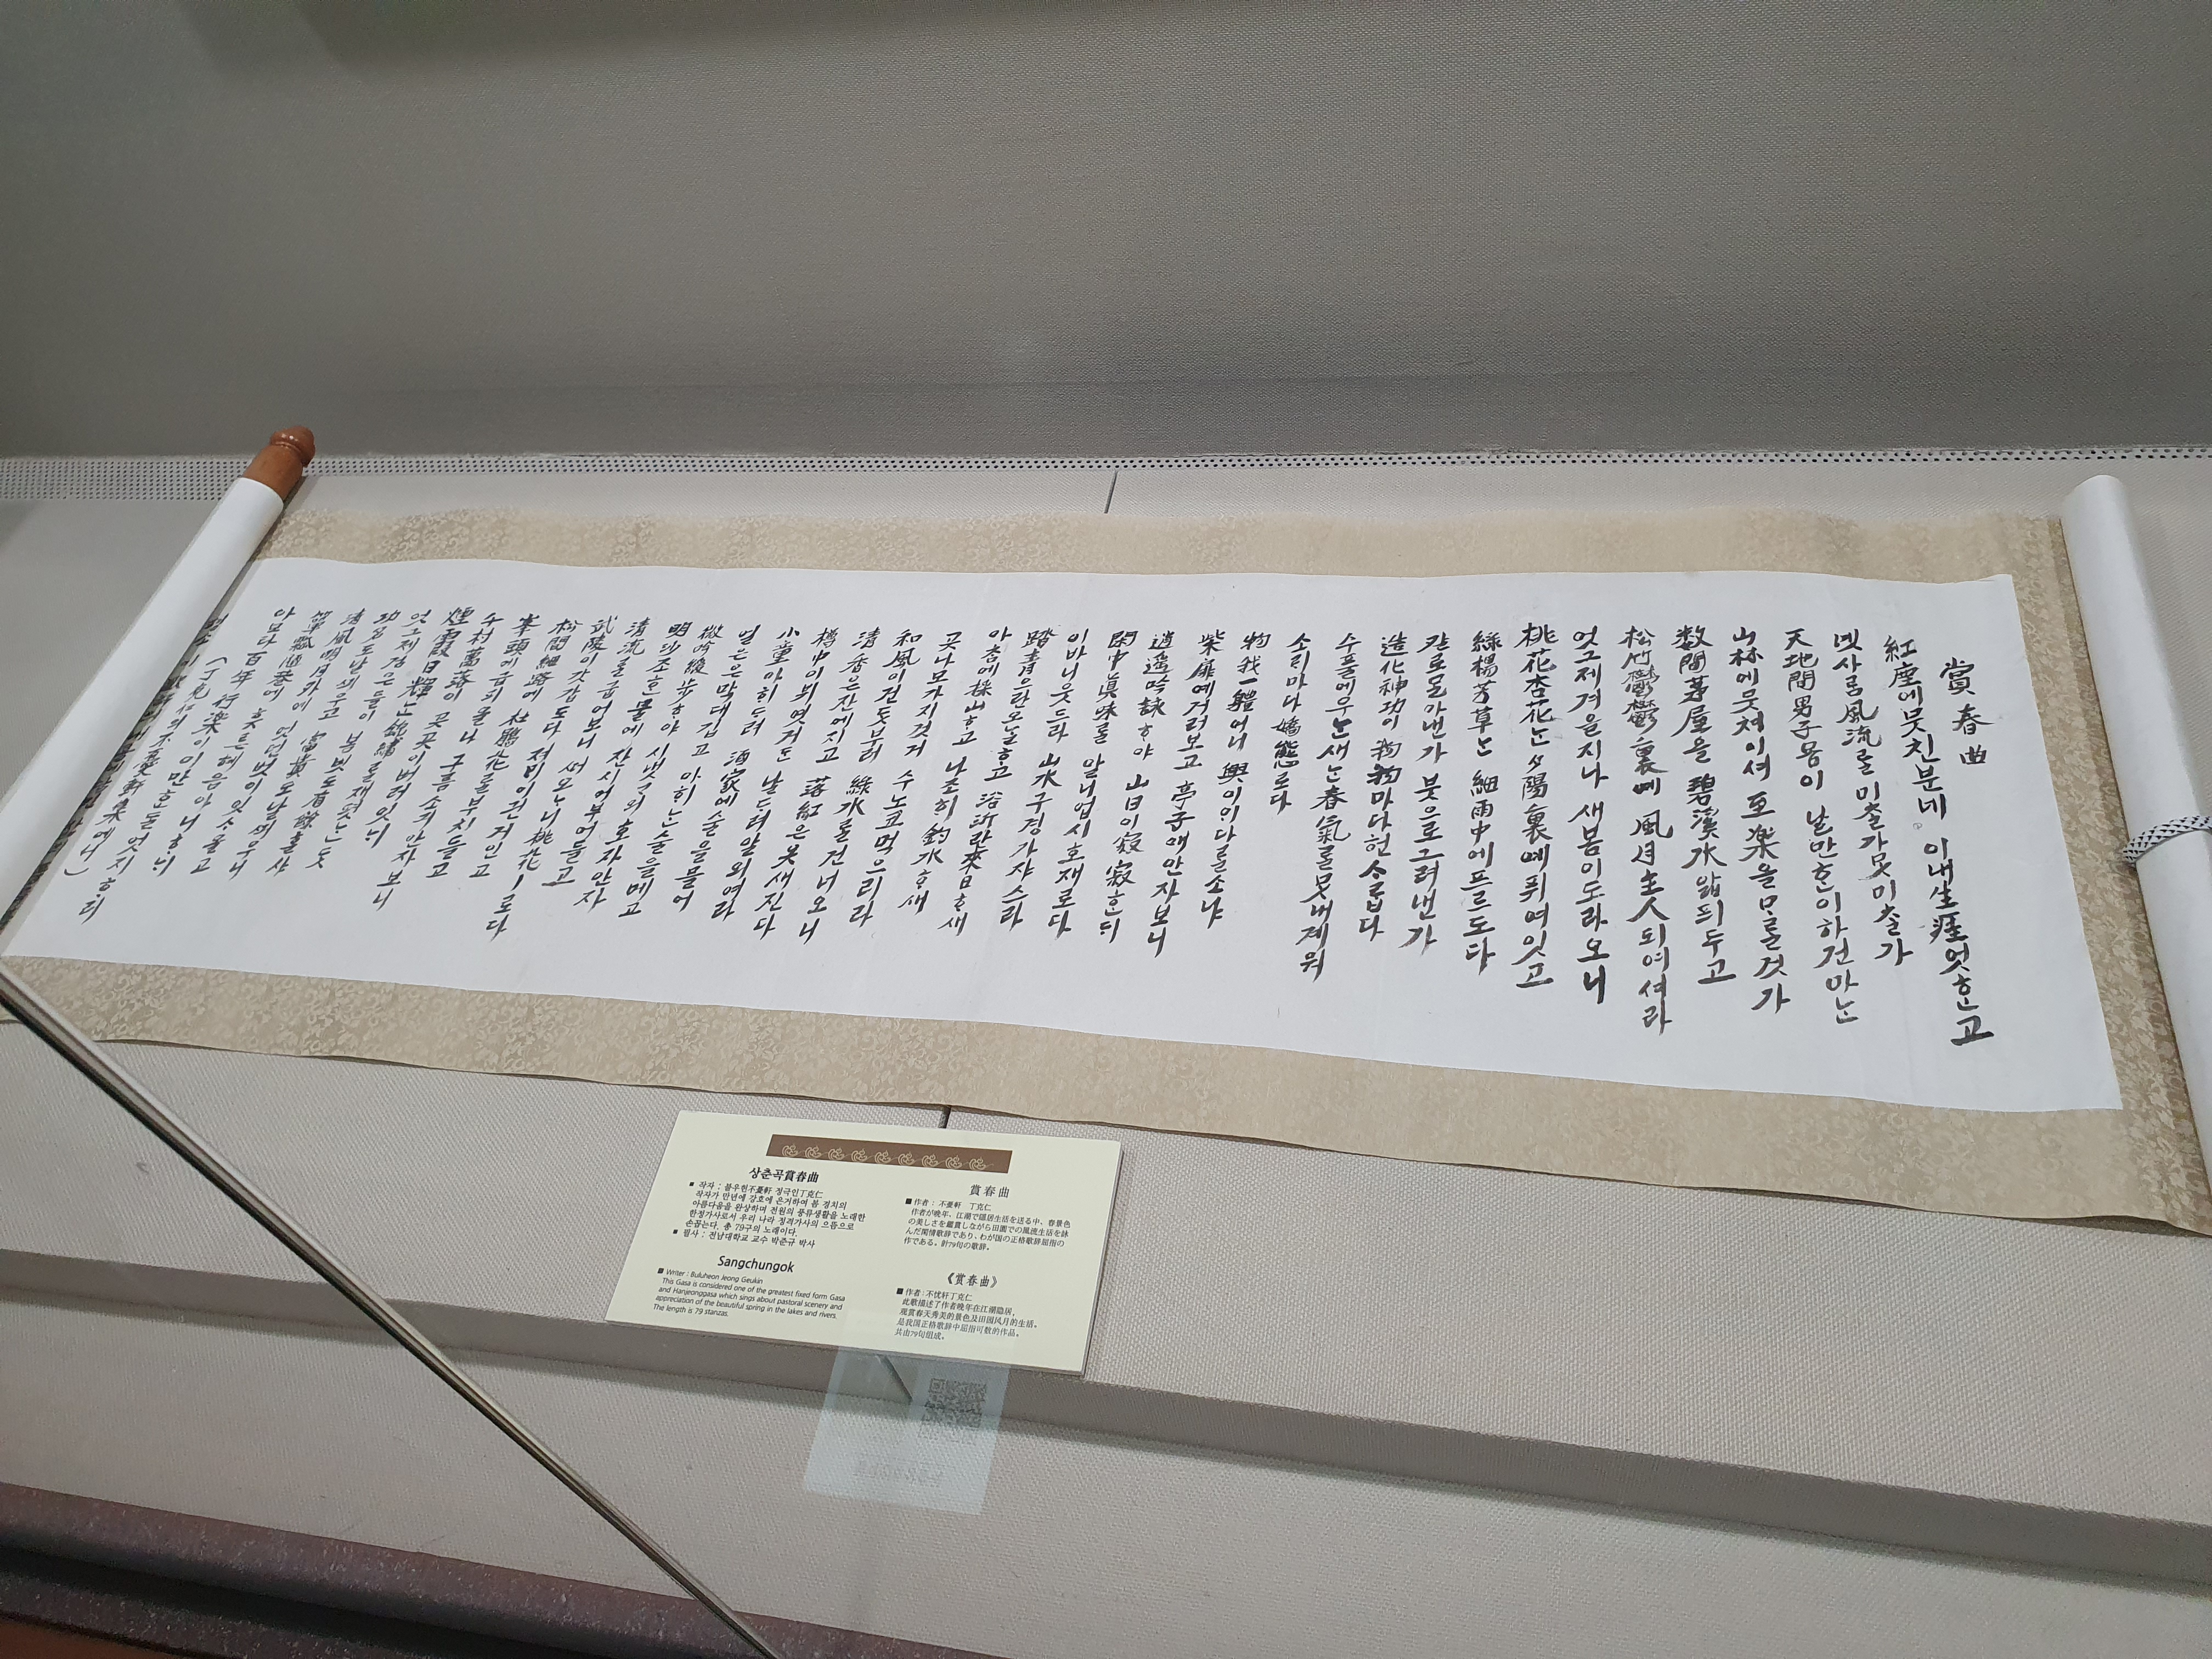 賞春曲
紅塵에뭇친분네 이내生涯엇ᄒᆞᆫ고
녯사ᄅᆞᆷ風流ᄅᆞᆯ미ᄎᆞᆯ가못미ᄎᆞᆯ가
天地間男子몸이 날만ᄒᆞᆫ이하건마ᄂᆞᆫ
山林에뭇쳐이셔 至楽을ᄆᆞᄅᆞᆯ것가
数間茅屋을 碧溪水앏픠두고
松竹鬱鬱裏예 風月主人되여셔라
엇그제겨을지나 새봄이도라오니
桃花杏花ᄂᆞᆫ夕陽裏예퓌여잇고
綠楊芳草ᄂᆞᆫ 細雨中에프르도다
칼로ᄆᆞᆯ아낸가 붓으로그려낸가
造化神功이 物物마다헌ᄉᆞ롭다
수풀에우ᄂᆞᆫ새ᄂᆞᆫ春氣ᄅᆞᆯ못내계워
소ᄅᆡ마다 嬌態로다
物我一體어니 興이이다ᄅᆞᆯ소냐
柴扉예거러보고 亭子애안자보니
逍遙吟詠ᄒᆞ야 山日이寂寂ᄒᆞᆫᄃᆡ
閑中眞味ᄅᆞᆯ 알니업시호재로다
이바니웃드라 山水구경가쟈스라
踏靑으란오ᄂᆞᆯᄒᆞ고 浴沂란來日ᄒᆞ새
아ᄎᆞᆷ에採山ᄒᆞ고 나조ᄒᆡ釣水ᄒᆞ새
곳나모가지것거 수노코먹으리라
和風이건ᄃᆞᆺ부러 綠水ᄅᆞᆯ건너오니
淸香은잔에지고 落紅은옷새진다
樽中이뷔엿거든 날ᄃᆞ려알외여라
小童아ᄒᆡᄃᆞ려 酒家에술을믈어
얼은은막대집고 아ᄒᆡᄂᆞᆫ술을메고
微吟緩步ᄒᆞ야 시냇ᄀᆞ의호자안자
明沙조ᄒᆞᆫ믈에 잔시어부어들고
淸流ᄅᆞᆯ굽어보니 ᄯᅥ오ᄂᆞ니桃花ㅣ로다
武陵이갓갑도다 져ᄆᆡ이건거인고
松間細路에 杜鵑花ᄅᆞᆯ부치들고
峯頭에급피올나 구름소긔안자보니
千村萬落이 곳곳이버러잇ᄂᆡ
煙霞日輝ᄂᆞᆫ錦繡ᄅᆞᆯ재폇ᄂᆞᆫᄃᆞᆺ
엇그제검은들이 봄빗도有餘ᄒᆞᆯ샤
功名도날ᄭᅴ우고 富貴도날ᄭᅴ우니
淸風明月外예 엇던벗이잇ᄉᆞ올고
簞瓢陋巷에 흣튼혜음아니ᄒᆞᄂᆡ
아모타百年行楽이이만ᄒᆞᆫᄃᆞᆯ엇지ᄒᆞ리
(丁克仁의不憂軒集에서)
상춘곡賞春曲
■ 작자 : 불우헌不憂軒 정극인丁克仁
작자가 만년에 강호에 은거하여 봄 경치의
아름다움을 완상하며 전원의 풍류생활을 노래한
한정가사로서 우리 나라 정격가사의 으뜸으로
손꼽는다. 총 79구의 노래이다.
■ 필사 : 전남대학교 교수 박준규 박사
Sangchungok
■ Writer : Buluheon Jeong Geukin
This Gasa is considered one of the greatest fixed form Gasa
and Hanjeonggasa which sings about pastoral scenery and
appreciation of the beautiful spring in the lakes and rivers.
The length is 79 stanzas.
賞春曲
■ 作者 : 不憂軒 丁克仁
作者が晩年、江湖で隠居生活を送る中、春景色
の美しさを鑑賞しながら田園での風流生活を詠
んだ閑情歌辞であり、わが国の正格歌辞屈指の
作である。計79句の歌辞。
《赏春曲》
■ 作者 : 不忧轩丁克仁
此歌描述了作者晚年在江湖隐居，
观赏春天秀美的景色及田园风月的生活。
是我国正格歌辞中屈指可数的作品。
共由79句组成。